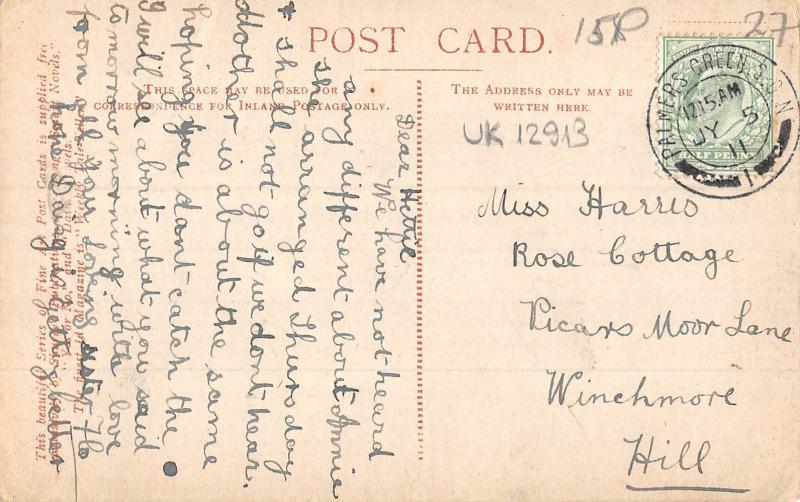 POST CARD.
THIS SPACE MAY BE USED FOR
CORRESPONDENCE FOR INLAND POSTAGE ONLY.
THE ADDRESS ONLY MAY BE
WRITTEN HERE.
15P
27
UK 12913
PALMERS-GREEN S.O.N
12.15 AM
JY 5
11
1
HALF PENNY
Miss Harris
Rose Cottage
Vicars Moor Lane
Winchmore
Hill
Dear Hettie
We have not heard
any different about Annie
she arranged Thursday
& shall not go if we dont hear.
Mother is about the same
hoping you dont catch the
I will see about what you said
to morrow morning with love
from all your loving sister Flo
This beautiful Series of Fine Art Post Cards is supplied free
Novels."
The Magazine is